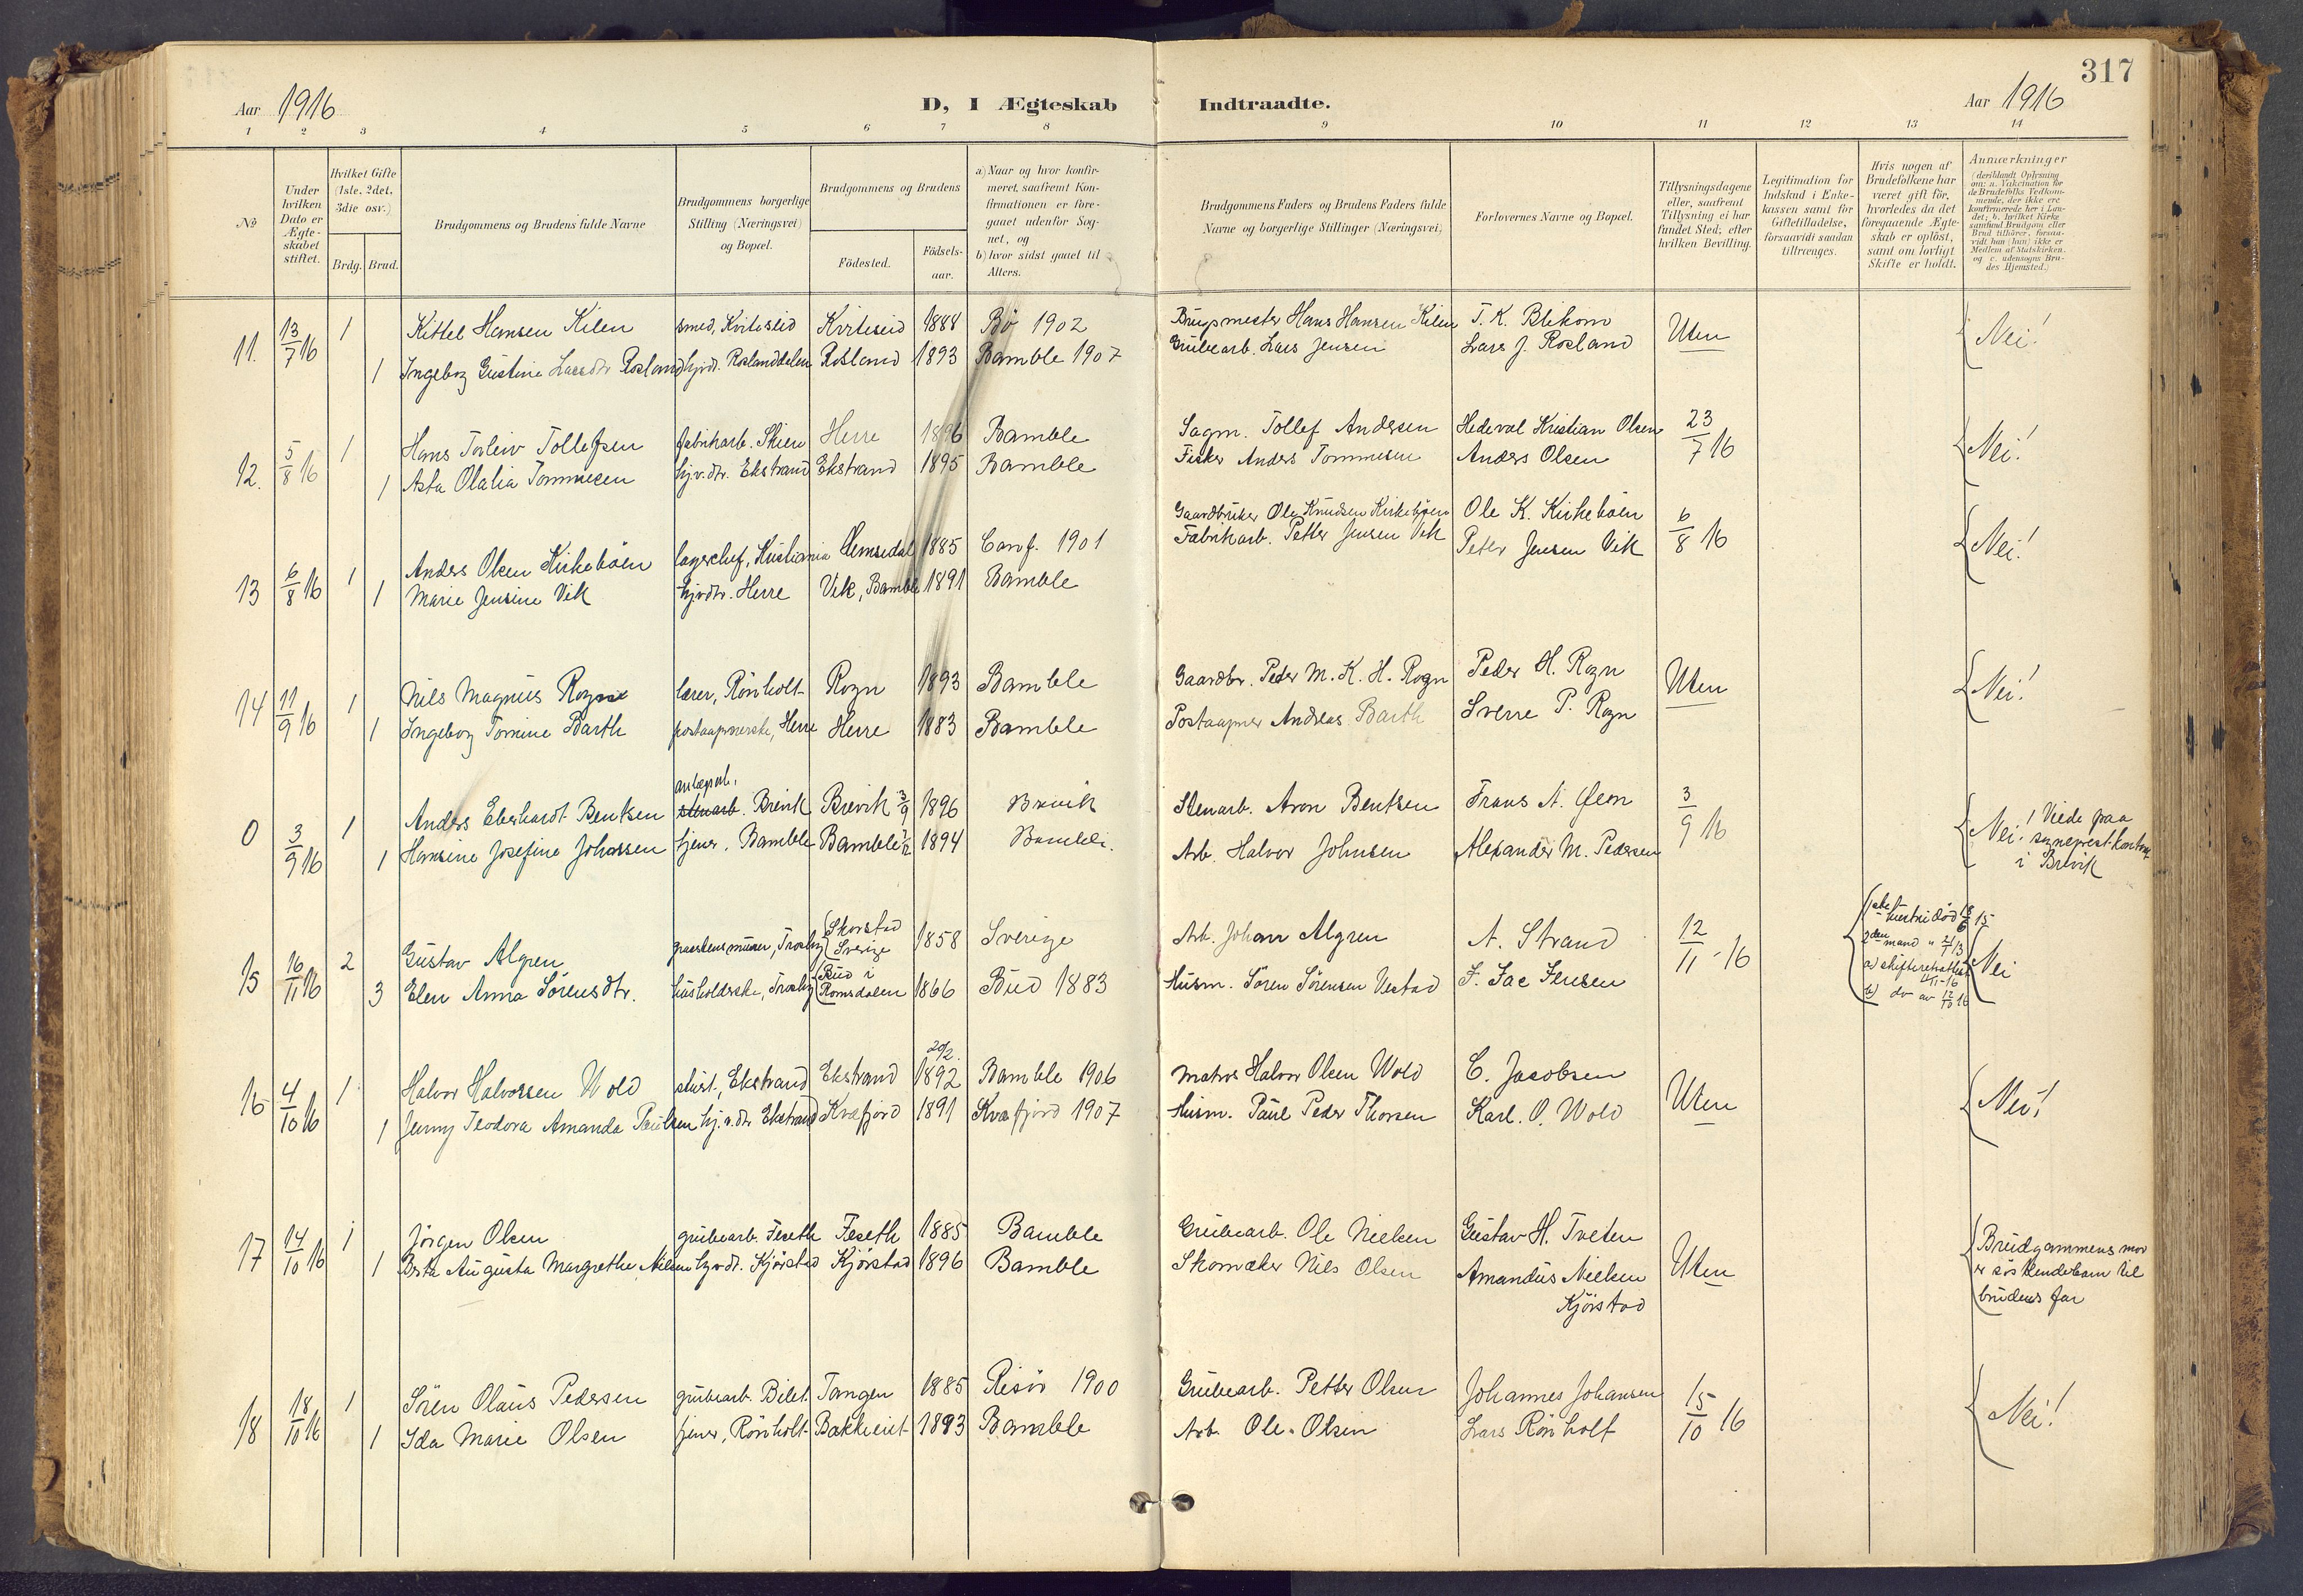 317
Aar 1916 D, I Ægteskab Indtraadte. Aar 1916
1 2 3 4 5 6 7 8 9 10 11 12 13 14
№
Under hvilken Dato er Ægteskabet stiftet.
Hvilket Gifte (1ste. 2det. 3die osv.)
Brdg. Brud.
Brudgommens og Brudens fulde Navne
Brudgommens borgerlige Stilling (Næringsvei) og Bopæl.
Brudgommens og Brudens
Fødested.
Fødsels-aar.
a) Naar og hvor konfirmeret, saafremt Konfirmationen er foregaaet udenfor Sognet, og
b) hvor sidst gaaet til Alters.
Brudgommens Faders og Brudens Faders fulde Navne og borgerlige Stillinger (Næringsvei)
Forlovernes Navne og Bopæl.
Tillysningsdagene eller, saafremt Tillysning ei har fundet Sted; efter hvilken Bevilling.
Legitimation for Indskud i Enkekassen samt for Giftetilladelse, forsaavidt saadan tiltrænges.
Hvis nogen af Brudefolkene har været gift før, hvorledes da det foregaaende Ægteskab er opløst, samt om lovligt Skifte er holdt.
Anmærkninger (deriblandt Oplysning om: a. Vakcination for de Brudefolks Vedkommende, der ikke ere konfirmerede her i Landet; b. hvilket Kirkesamfund Brudgom eller Brud tilhører, forsaavidt han (hun) ikke er Medlem af Statskirken. og c. udensogns Brudes Hjemsted.)
11. 13/7 16 1 Kittel Hansen Kilen smed, Kviteseid Kviteseid 1888 Bø 1902 Hans Hansen Kilen T. K. Blekom Uten Nei!
1 Ingeborg Gustine Larsdtr Rosland hjvdt. Roslanddalen Rosland 1893 Bamble 1907 Grubearb. Lars Jensen Lars J. Rosland
12. 5/8 16 1 Hans Torleiv Tollefsen fabrikarb. Skien Herre 1896 Bamble Sagm. Tollef Andersen Hedeval Kristian Olsen 23/7 16 Nei!
1 Asta Olalia Tommesen hj.v.dtr. Ekstrand Ekstrand 1895 Bamble Fisker Anders Tommesen Anders Olsen
13 6/8 16 1 Anders Olsen Kirkebøen lagerchef, Kristiania Hemsedal 1885 Conf. 1901 Gaardbruker Ole Knudsen Kirkebøen Ole K. Kirkebøen 6/8 16 Nei!
1 Marie Jensine Vik hjvdtr. Herre Vik, Bamble 1891 Bamble Fabrikarb. Petter Jensen Vik Peter Jensen Vik
14 11/9 16 1 Nils Magnus Rogn lærer, Rönholt Rogn 1893 Bamble Gaardbr. Peder M. K. H. Rogn Peder H. Rogn Uten Nei!
1 Ingeborg Tomine Barth postaapnerske, Herre Herre 1883 Bamble Postaapner Andreas Barth Sverre P. Rogn
anlægsarb.
0 3/9 16 1 Anders Eberhardt Bentsen stenarb. Brevik Brevik 3/9 1896 Brevik Stenarb. Aron Bentsen Frans A. Øeon 3/9 16 Nei! Viede paa
1 Hansine Josefine Johnssen tjener. Bamble Bamble 1894 Bamble. Arb. Halvor Johnsen Alexander M. Pedersen sogneprest.kontor
i Brevik
15 16/11 16 2 Gustav Algren Skorstad Sverige 1858 Sverige Arb. Johan Algren A. Strand 12/11 -16 Nei
3 Elen Anna Sörensdtr. husholderske, Trosby Bud i Romsdalen 1866 Bud 1883 Husm. Sören Sörensen Vestad J. Jac Jensen
hustru död 15
2den mand
a) skifteretsattest
b) do av 12/10 16
20/2.
16 4/10 16 1 Halvor Halvorsen Wold Ekstrand Ekstrand 1892 Bamble 1906 Matros Halvor Olsen Wold C. Jacobsen Uten Nei!
1 Jenny Teodora Amanda Paulsen hj.v.dtr. Ekstrand Kvæfjord 1891 Kvæfjord 1907 Husm. Paul Peder Thorsen Karl. O. Wold
17 14/10 16 1 Jörgen Olsen grubearb. Feseth Feseth 1885 Bamble Grubearb. Ole Nielsen Gustav H. Tveten Uten Brudgommens mor
1 Berta Augusta Margrethe Nilsen hjvdt. Kjörstad Kjörstad 1896 Bamble Skomaker Nils Olsen Amandus Nielsen er söskendebarn til
Kjörstad brudens far
18 18/10 16 1 Sören Olaus Pedersen grubearb. Bilet. Tangen 1885 Risör 1900 Grubearb. Petter Olsen Johannes Johansen 15/10 16 Nei!
1 Ida Marie Olsen tjener, Rönholt Bakkeeiet 1893 Bamble Arb. Ole Olsen Lars Rönholt